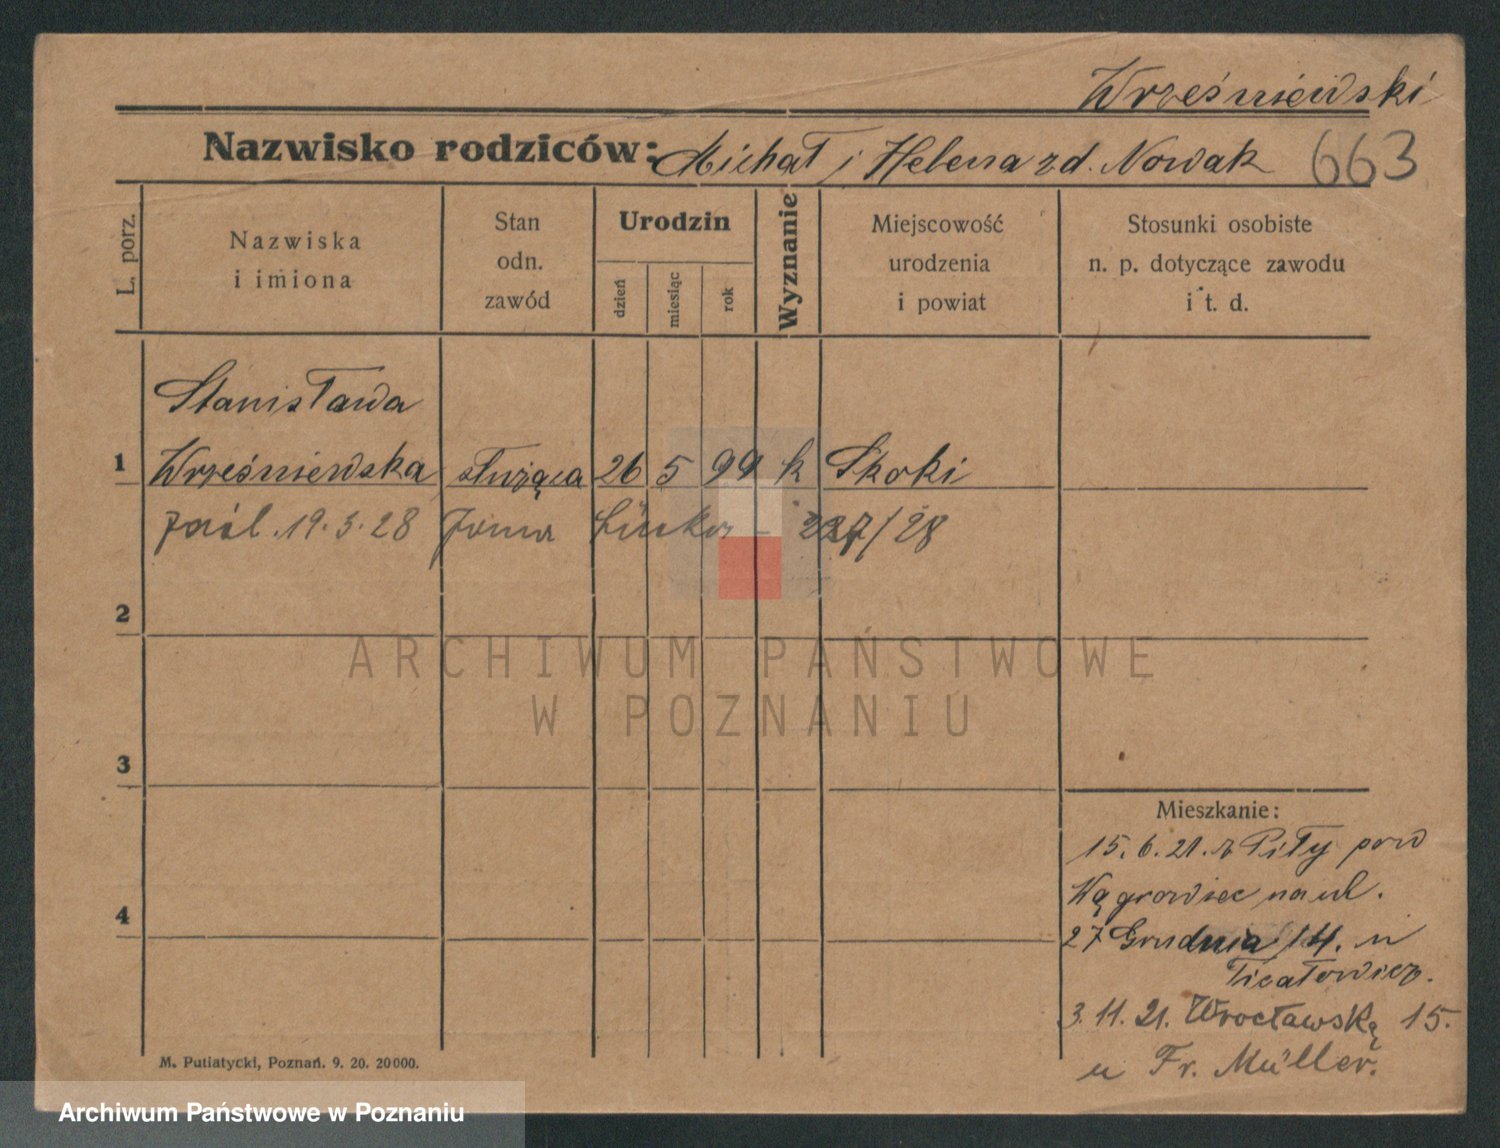 Wrześniewski
Nazwisko rodziców: Michał i Helena zd. Nowak 663
L. porz.
Nazwiska
i imiona
Stan
odn.
zawód
Urodzin
dzień
miesiąc
rok
Wyznanie
Miejscowość
urodzenia
i powiat
Stosunki osobiste
n. p. dotyczące zawodu
i t. d.
Stanisława
1 Wrześniewska służąca 26 5 99 k Skoki
zaśl. 19.5.28 227/28
2
3
4
Mieszkanie:
15.6.21. z Piły pow
Wągrowiec na ul.
27 Grudnia 14. u
3.11.21. Wrocławską 15.
u Fr. Müller.
M. Putiatycki, Poznań. 9. 20. 20000.
ARCHIWUM PAŃSTWOWE
W POZNANIU
Archiwum Państwowe w Poznaniu